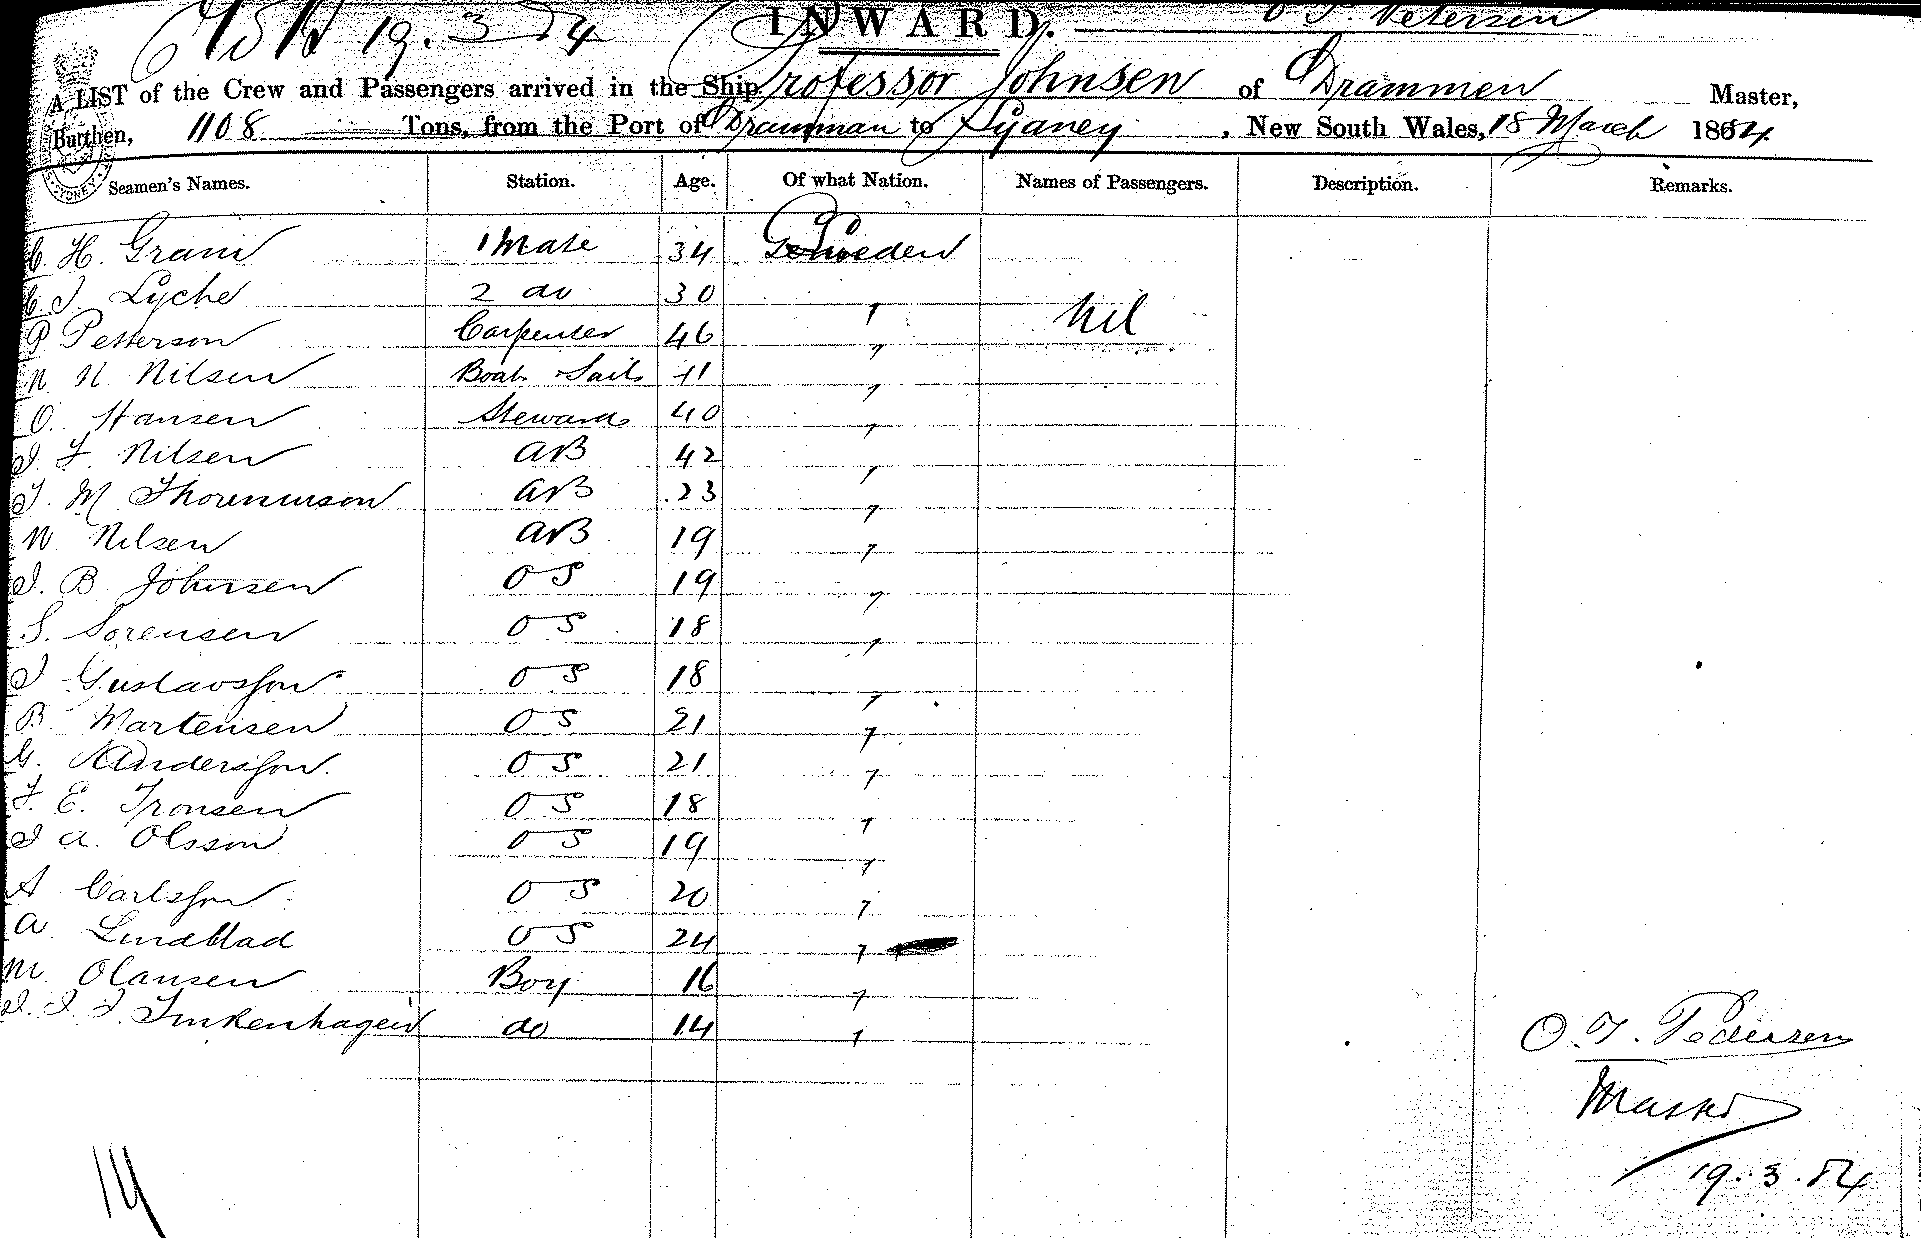 19.3.84 INWARD. O T. Petersen
A LIST of the Crew and Passengers arrived in the Ship Professor Johnsen of Drammen Master,
Burthen, 1108 Tons, from the Port of Dramman to Sydney, New South Wales, 18 March 1884
Seamen's Names. Station. Age. Of what Nation. Names of Passengers. Description. Remarks.
C. H. Gram 1 Mate 34 Sweden
C J Lyche 2 do 30 "
Nil
P Petterson Carpenter 46 "
N N Nilsen Boat Sails 41 "
O. Hansen Steward 40 "
J. F. Nilsen AB 42 "
J. M Thorenmson AB 23 "
N. Nilsen AB 19 "
J. B. Johnsen OS 19 "
S. Sorensen OS 18 "
J Gustavsson OS 18 "
B Martensen OS 21 "
G. Andersson OS 21 "
F. E. Tronsen OS 18 "
J A. Olsson OS 19 "
A Carlsson OS 20 "
A Lindblad OS 24 "
M Olansen Boy 16 "
J. J. J. Finkenhagen do 14 "
O. T. Pedersen
Master
19.3.84
19